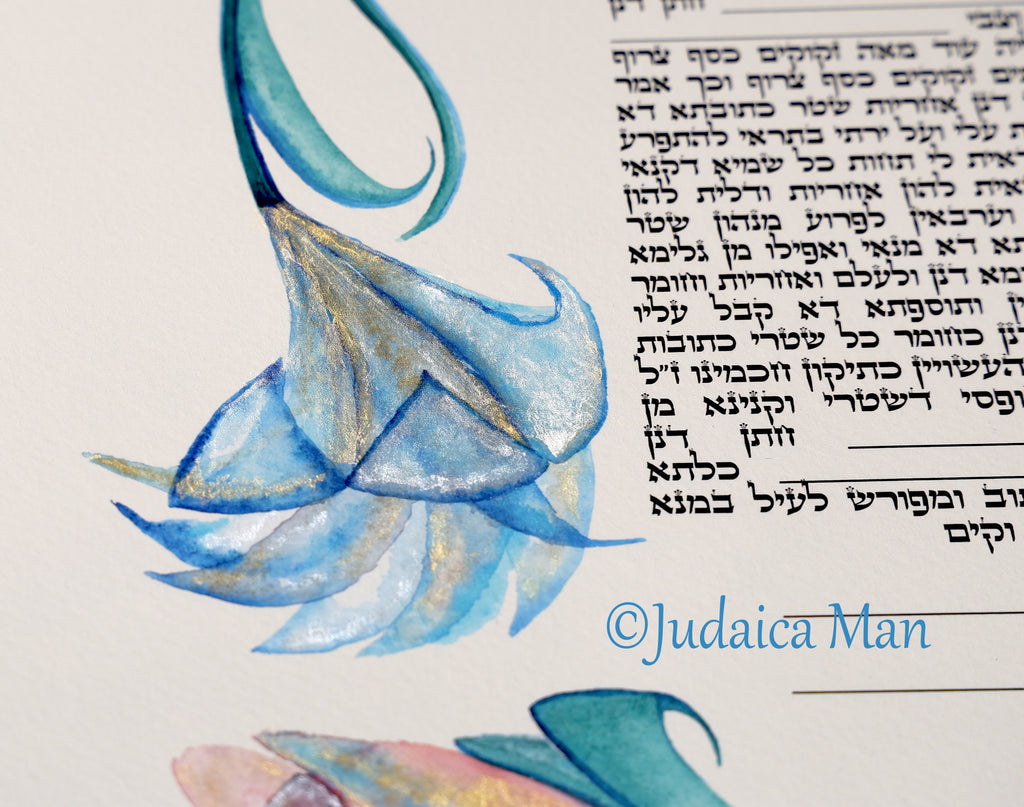 חתן דנן
וצבי
יה עוד מאה זקוקים כסף צרוף
ים זקוקים כסף צרוף וכך אמר
דנן אחריות שטר כתובתא דא
עלי ועל ירתי בתראי להתפרע
ראית לי תחות כל שמיא דקנאי
אית להון אחריות ודלית להון
וערבאין לפרוע מנהון שטר
תא דא מנאי ואפילו מן גלימא
מא דנן ולעלם ואחריות וחומר
ין ותוספתא דא קבל עליו
תנן כחומר כל שטרי כתובות
העשויין כתיקון חכמינו ז״ל
ופסי דשטרי וקנינא מן
חתן דנן
כלתא
תוב ומפורש לעיל במנא
וקים
©Judaica Man